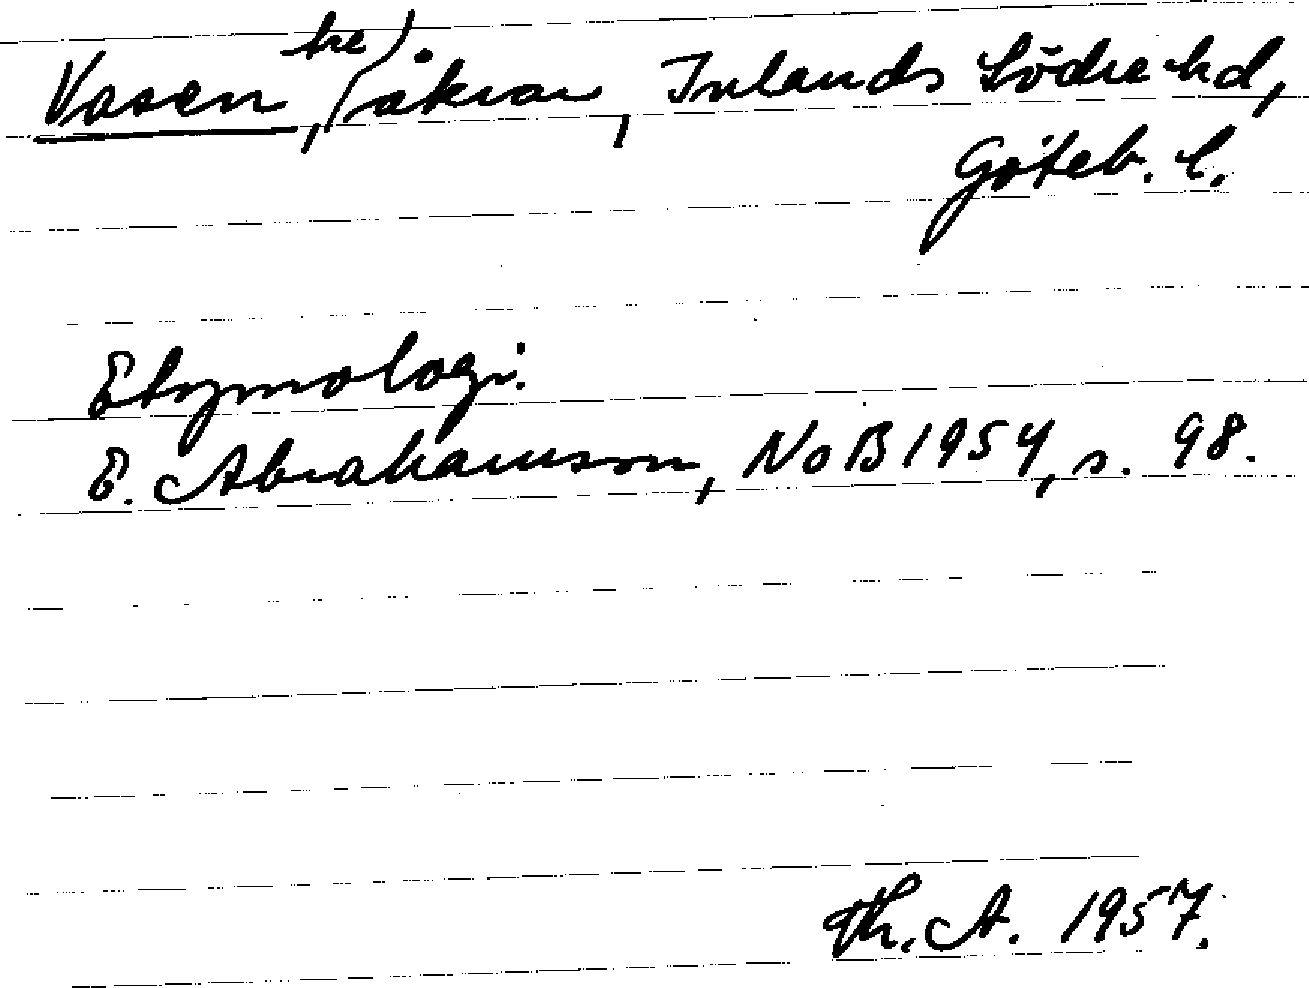 Vasen, tre åkrar, Inlands Södre hd,
Göteb. l.
Etymologi:
E. Abrahamson, NoB 1954, s. 98.
Th. A. 1957.